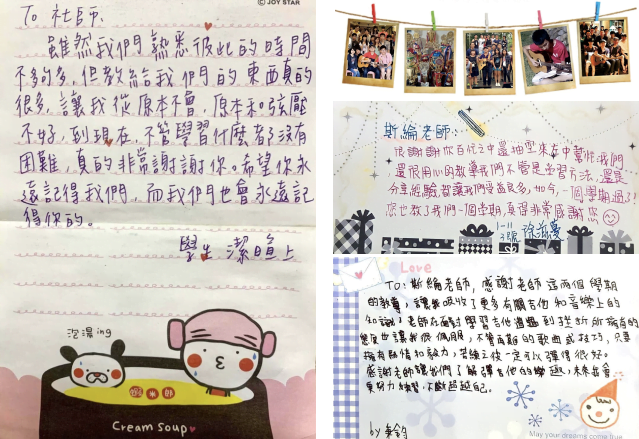 © JOY STAR
To 社師:
雖然我們熟悉彼此的時間
不夠多,但教給我們的東西真的
很多,讓我從原本不會,原本和弦壓
不好,到現在,不管學習什麼都沒有
困難,真的非常謝謝你。希望你永
遠記得我們,而我們也會永遠記
得你的。
學生 潔暄 上
泡湯ing
Cream Soup
斯綸老師:
很謝謝你百忙之中還抽空來
還很用心的教導我們不管是學習方法,還是
分享經驗,都讓我們受益良多,如今,一個學期過了!
您也教了我們一個學期,真的非常感謝您
1-11
Love
To:斯綸老師,感謝老師這兩個學期
的教導,讓我吸收了更多有關吉他和音樂上的
知識,老師在面對學習吉他遇到挫折所擁有的
態度也讓我很佩服,不管再難的歌曲或技巧,只要
擁有熱情和毅力,苦練之後一定可以彈得很好。
感謝老師讓我們了解彈吉他的樂趣,未來我會
更努力練習,不斷超越自己。
by
May your dreams come true